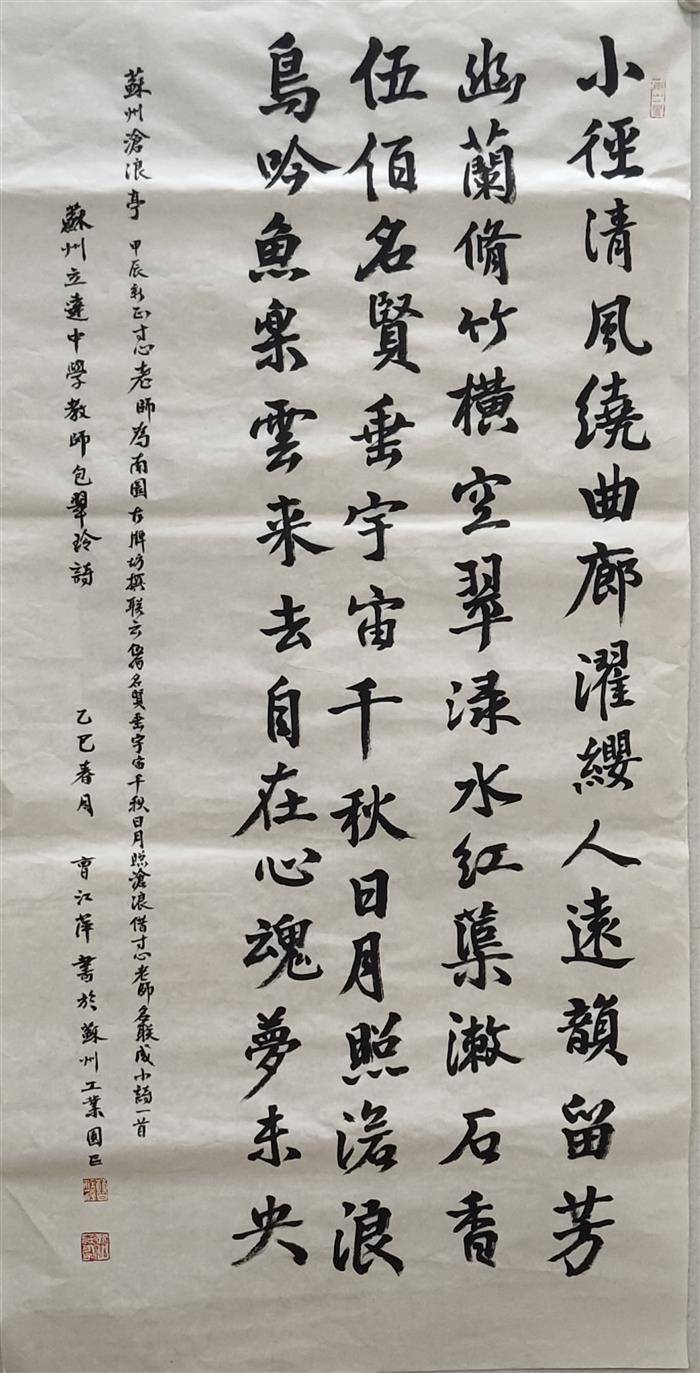 小徑清風繞曲廊濯纓人遠韻留芳
幽蘭脩竹橫空翠渌水紅蕖漱石香
伍佰名賢垂宇宙千秋日月照滄浪
鳥吟魚樂雲来去自在心魂夢未央
蘇州滄浪亭 甲辰新正寸志老師為南園古牌坊撰联云伍佰名賢垂宇宙千秋日月照滄浪借寸志老師名联成小詩一首
蘇州立達中學教師包翠玲詩 乙巳春月 曹江萍書於蘇州工業園區